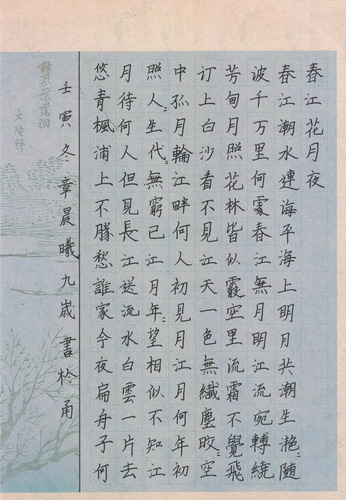 春江花月夜
春江潮水連海平海上明月共潮生滟〻隨
波千万里何處春江無月明江流宛轉繞
芳甸月照花林皆似霰空里流霜不覺飛
汀上白沙看不見江天一色無纖塵皎〻空
中孤月輪江畔何人初見月江月何年初
照人〻生代〻無窮已江月年〻望相似不知江
月待何人但見長江送流水白雲一片去
悠青楓浦上不勝愁誰家今夜扁舟子何
壬寅冬章晨曦九歲書於甬